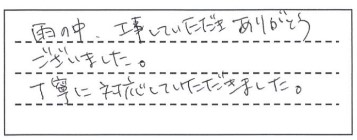 雨の中、工事していただきありがとう
ございました。
丁寧に対応していただきました。